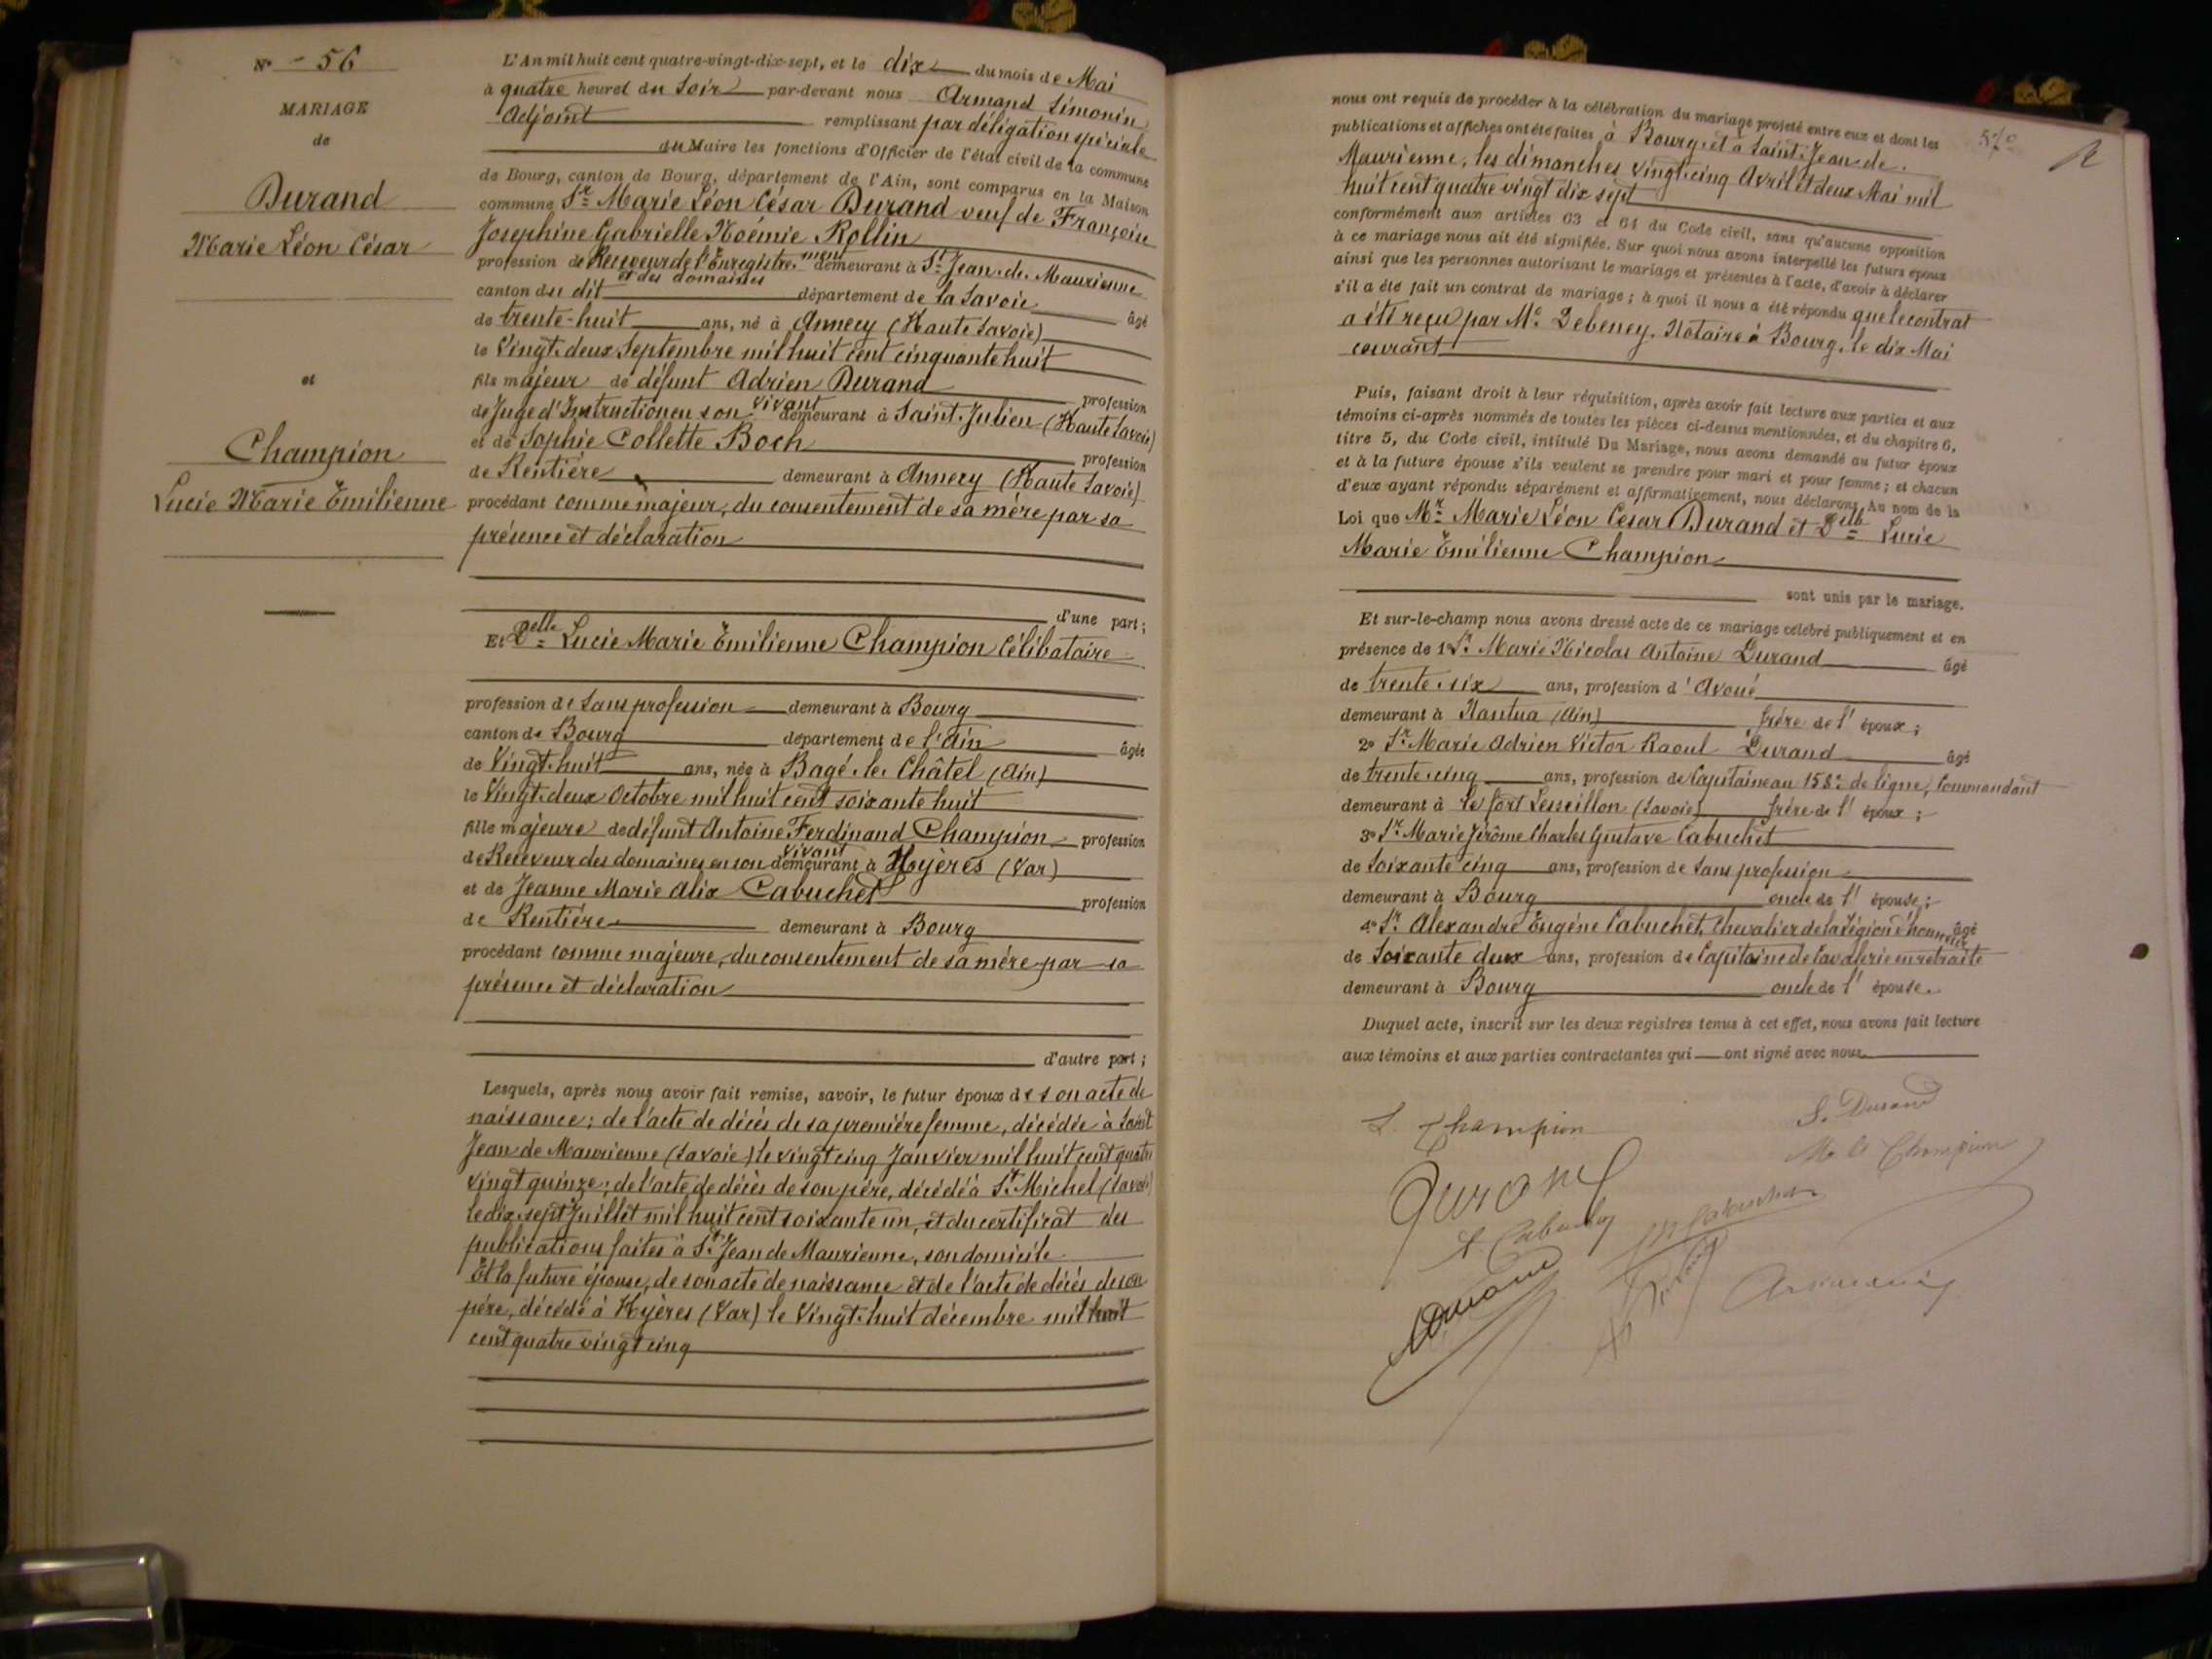 N° - 56
MARIAGE
de
Durand
Marie Léon César
et
Champion
Lucie Marie Emilienne
L'An mil huit cent quatre-vingt-dix-sept, et le dix du mois de Mai
à quatre heures du Soir par-devant nous Armand Simonin
Adjoint remplissant par délégation spéciale
du Maire les fonctions d'Officier de l'état civil de la commune
de Bourg, canton de Bourg, département de l'Ain, sont comparus en la Maison
commune Sr Marie Léon César Durand veuf de Françoise
Josephine Gabrielle Noémie Rollin
profession de Receveur de l'Enregistrement et des domaines demeurant à St Jean-de-Maurienne
canton du dit département de la Savoie âgé
de trente-huit ans, né à Annecy (Haute Savoie)
le Vingt-deux Septembre mil huit cent cinquante huit
fils majeur de défunt Adrien Durand profession
de Juge d'Instruction en son vivant demeurant à Saint-Julien (Haute Savoie)
et de Sophie Collette Boch profession
de Rentière demeurant à Annecy (Haute Savoie)
procédant comme majeur, du consentement de sa mère par sa
présence et déclaration
d'une part;
Et Delle Lucie Marie Emilienne Champion Célibataire
profession de Sans profession demeurant à Bourg
canton de Bourg département de l'Ain âgée
de Vingt-huit ans, née à Bagé-le-Châtel (Ain)
le Vingt-deux Octobre mil huit cent soixante huit
fille majeure de défunt Antoine Ferdinand Champion profession
de Receveur des domaines en son vivant demeurant à Hyères (Var)
et de Jeanne Marie Alix Cabuchet profession
de Rentière demeurant à Bourg
procédant comme majeure, du consentement de sa mère par sa
présence et déclaration
d'autre part;
Lesquels, après nous avoir fait remise, savoir, le futur époux de son acte de
naissance; de l'acte de décès de sa première femme, décédée à Saint
Jean de Maurienne (Savoie) le vingt cinq Janvier mil huit cent quatre
vingt quinze; de l'acte de décès de son père, décédé à St Michel (Savoie)
le dix-sept Juillet mil huit cent soixante un, et du certificat des
publications faites à St Jean de Maurienne, son domicile
Et la future épouse, de son acte de naissance et de l'acte de décès de son
père, décédé à Hyères (Var) le Vingt-huit décembre mil huit
cent quatre vingt cinq
nous ont requis de procéder à la célébration du mariage projeté entre eux et dont les
publications et affiches ont été faites à Bourg et à Saint-Jean-de-
Maurienne, les dimanches vingt-cinq Avril et deux Mai mil
huit cent quatre vingt dix sept
conformément aux articles 63 et 64 du Code civil, sans qu'aucune opposition
à ce mariage nous ait été signifiée. Sur quoi nous avons interpellé les futurs époux
ainsi que les personnes autorisant le mariage et présentes à l'acte, d'avoir à déclarer
s'il a été fait un contrat de mariage; à quoi il nous a été répondu que le contrat
a été reçu par Me Debeney, Notaire à Bourg, le dix Mai
courant
Puis, faisant droit à leur réquisition, après avoir fait lecture aux parties et aux
témoins ci-après nommés de toutes les pièces ci-dessus mentionnées, et du chapitre 6,
titre 5, du Code civil, intitulé Du Mariage, nous avons demandé au futur époux
et à la future épouse s'ils veulent se prendre pour mari et pour femme; et chacun
d'eux ayant répondu séparément et affirmativement, nous déclarons Au nom de la
Loi que Mr Marie Léon César Durand et Delle Lucie
Marie Emilienne Champion
sont unis par le mariage.
Et sur-le-champ nous avons dressé acte de ce mariage célébré publiquement et en
présence de 1° Sr Marie Nicolas Antoine Durand âgé
de trente-six ans, profession d'Avoué
demeurant à Nantua (Ain) frère de l'époux;
2° Sr Marie Adrien Victor Raoul Durand âgé
de trente cinq ans, profession de Capitaine au 158e de ligne, Commandant
demeurant à le fort Lesseillon (Savoie) frère de l'époux;
3° Sr Marie Jérôme Charles Gustave Cabuchet
de Soixante cinq ans, profession de Sans profession
demeurant à Bourg oncle de l'épouse;
4° Sr Alexandre Eugène Cabuchet, Chevalier de la Légion d'honneur âgé
de Soixante deux ans, profession de Capitaine de Cavalerie en retraite
demeurant à Bourg oncle de l'épouse.
Duquel acte, inscrit sur les deux registres tenus à cet effet, nous avons fait lecture
aux témoins et aux parties contractantes qui ont signé avec nous
L. Champion
S. Durand
Champion
Durand
Durand